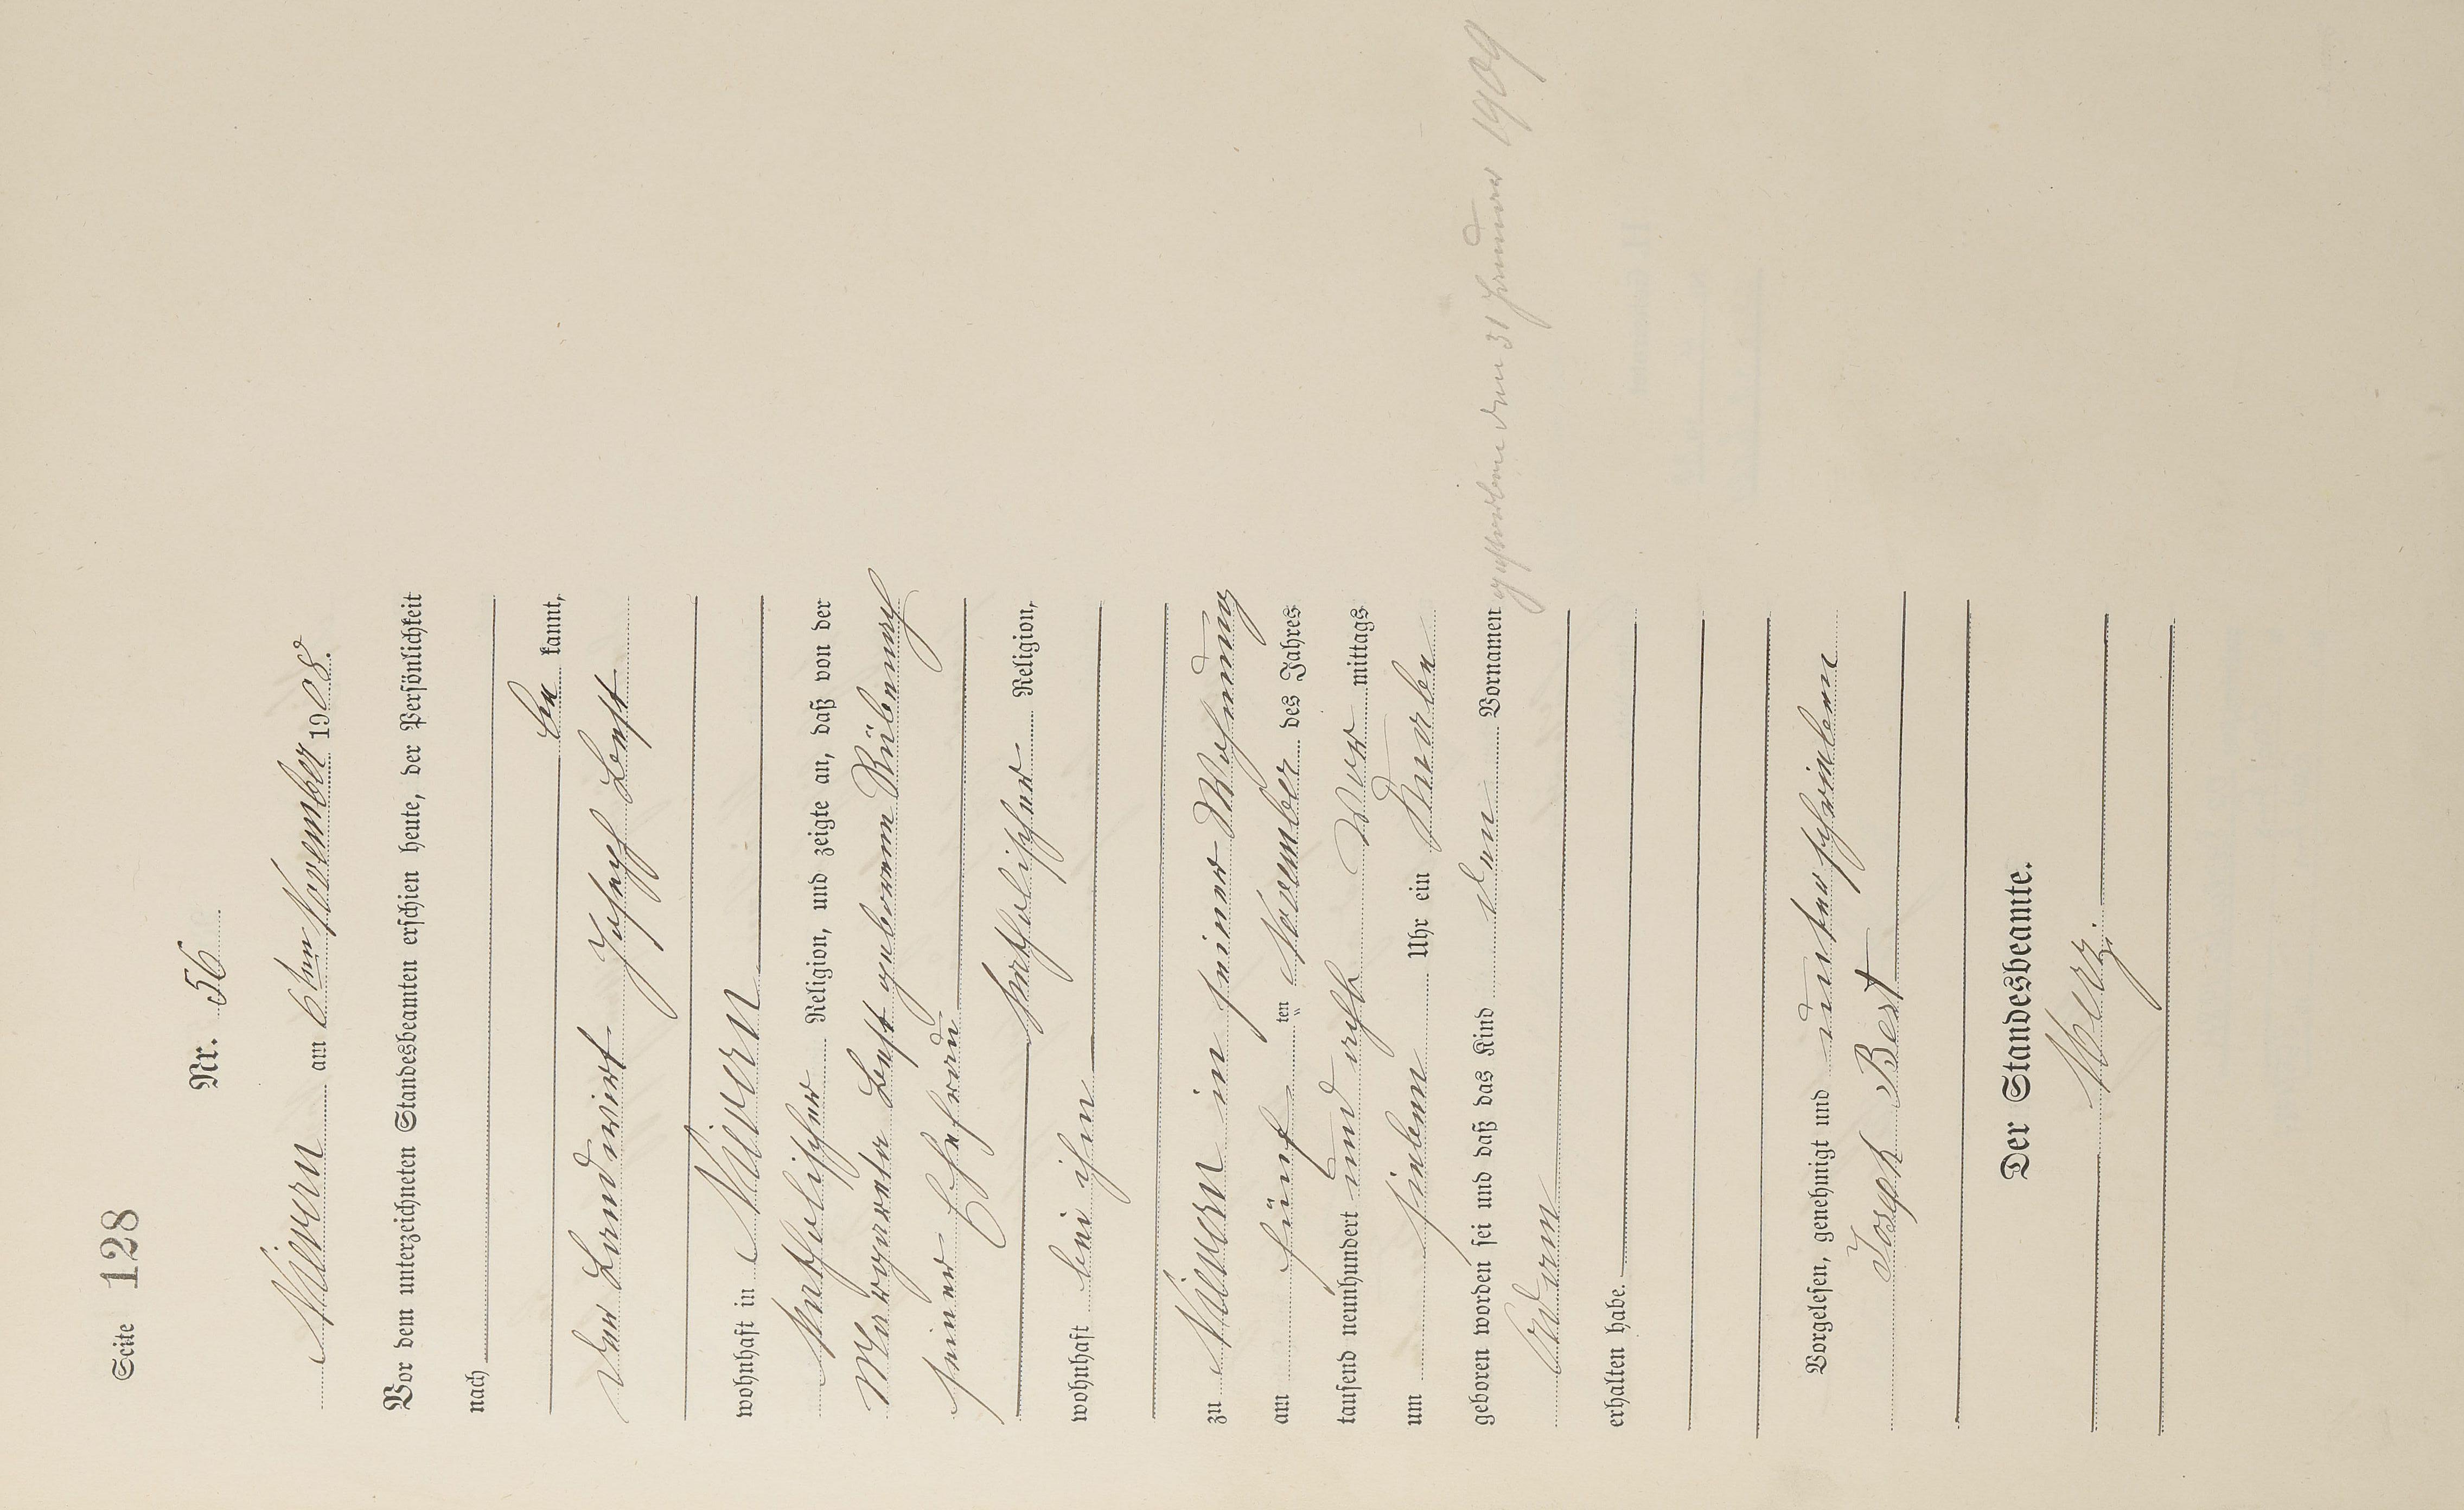 Seite 128
Nr. 56
Nievern am 6ten November 1908.
Vor dem unterzeichneten Standesbeamten erschien heute, der Persönlichkeit
nach
be kannt,
der Landwirt Joseph Best
wohnhaft in Nievern
katholischer Religion, und zeigte an, daß von der
Margareta Best geborenen
seiner Ehefrau
katholischer Religion,
wohnhaft bei ihm
zu Nievern in seiner Wohnung
am fünf ten November des Jahres
tausend neunhundert und acht Vor mittags
um sieben Uhr ein Knabe
geboren worden sei und daß das Kind den Vornamen
Adam
erhalten habe.
gestorben den 31 Januar 1909
Vorgelesen, genehmigt und unterschrieben
Joseph Best
Der Standesbeamte.